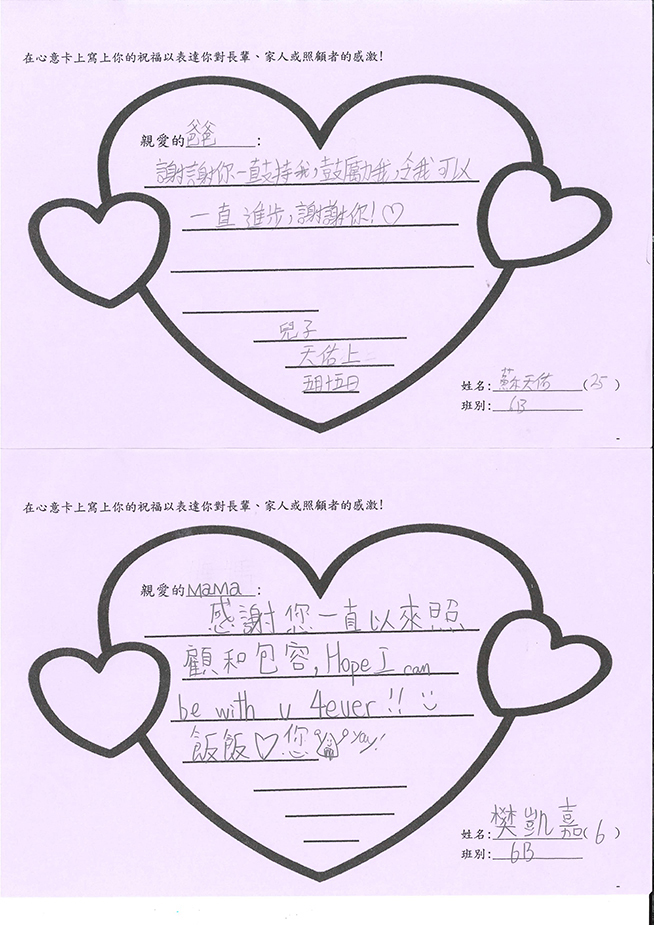 在心意卡上寫上你的祝福以表達你對長輩、家人或照顧者的感激!
親愛的爸爸:
謝謝你一直支持我,鼓勵我,令我可以
一直進步,謝謝你!♡
兒子
天佑上
五月十五日
姓名:蘇天佑(25)
班別:6B
在心意卡上寫上你的祝福以表達你對長輩、家人或照顧者的感激!
親愛的MaMa:
感謝您一直以來照
顧和包容,Hope I can
be with u 4ever!!
飯飯♡您 Yay!
姓名:樊凱嘉(6)
班別:6B